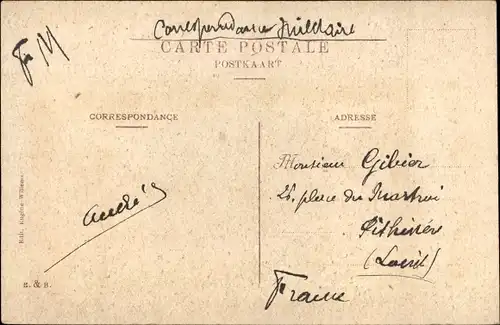 Correspondance Militaire
F M
CARTE POSTALE
POSTKAART
CORRESPONDANCE
ADRESSE
Monsieur Gibier
25, place du Martroi
Pithiviers
(Loiret)
France
André
Edit. Eugène Willems
S. & B.